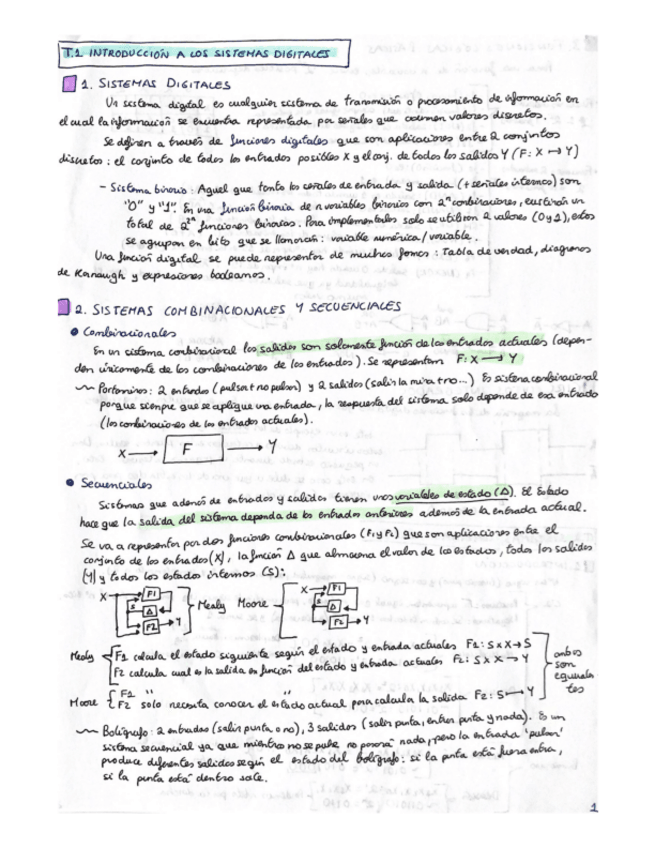 T.1 INTRODUCCIÓN A LOS SISTEMAS DIGITALES
1. SISTEMAS DIGITALES
Un sistema digital es cualquier sistema de transmisión o procesamiento de información en
el cual la información se encuentra representada por señales que asumen valores discretos.
Se definen a través de funciones digitales que son aplicaciones entre 2 conjuntos
discretos: el conjunto de todas las entradas posibles X y el conj. de todas las salidas Y (F: X → Y)
- Sistema binario: Aquel que tanto las señales de entrada y salida (+ señales internas) son
"0" y "1". En una función binaria de n variables binarias con 2^n combinaciones, existirán un
total de 2^2^n funciones binarias. Para implementarlas solo se utilizan 2 valores (0 y 1), estos
se agrupan en bits que se llamarán: variable numérica / variable.
Una función digital se puede representar de muchas formas: Tabla de verdad, diagramas
de Karnaugh y expresiones booleanas.
2. SISTEMAS COMBINACIONALES Y SECUENCIALES
• Combinacionales
En un sistema combinacional las salidas son solamente función de las entradas actuales (depen-
den únicamente de las combinaciones de las entradas). Se representan F: X → Y
Portaminas: 2 entradas (pulsar + no pulsar) y 2 salidas (salir la mina + no...) Es sistema combinacional
porque siempre que se aplique una entrada, la respuesta del sistema solo depende de esa entrada
(las combinaciones de las entradas actuales).
X → F → Y
• Secuenciales
Sistemas que además de entradas y salidas tienen unas variables de estado (Δ). El Estado
hace que la salida del sistema dependa de las entradas anteriores además de la entrada actual.
Se va a representar por dos funciones combinacionales (F1 y F2) que son aplicaciones entre el
conjunto de las entradas (X), la función Δ que almacena el valor de los estados, todas las salidas
(Y) y todos los estados internos (S):
X F1 S Δ F2 Y } Mealy Moore { X F1 S Δ F2 Y
Mealy { F1 calcula el estado siguiente según el estado y entrada actuales F1: S x X → S
F2 calcula cual es la salida en función del estado y entrada actuales F2: S x X → Y
ambos son equivalentes
Moore { F1 " "
F2 solo necesita conocer el estado actual para calcular la salida F2: S → Y
Bolígrafo: 2 entradas (salir punta o no), 3 salidas (salir punta, entrar punta y nada). Es un
sistema secuencial ya que mientras no se pulse no pasará nada, pero la entrada 'pulsar'
produce diferentes salidas según el estado del bolígrafo: si la punta está fuera entra,
si la punta está dentro sale.
1